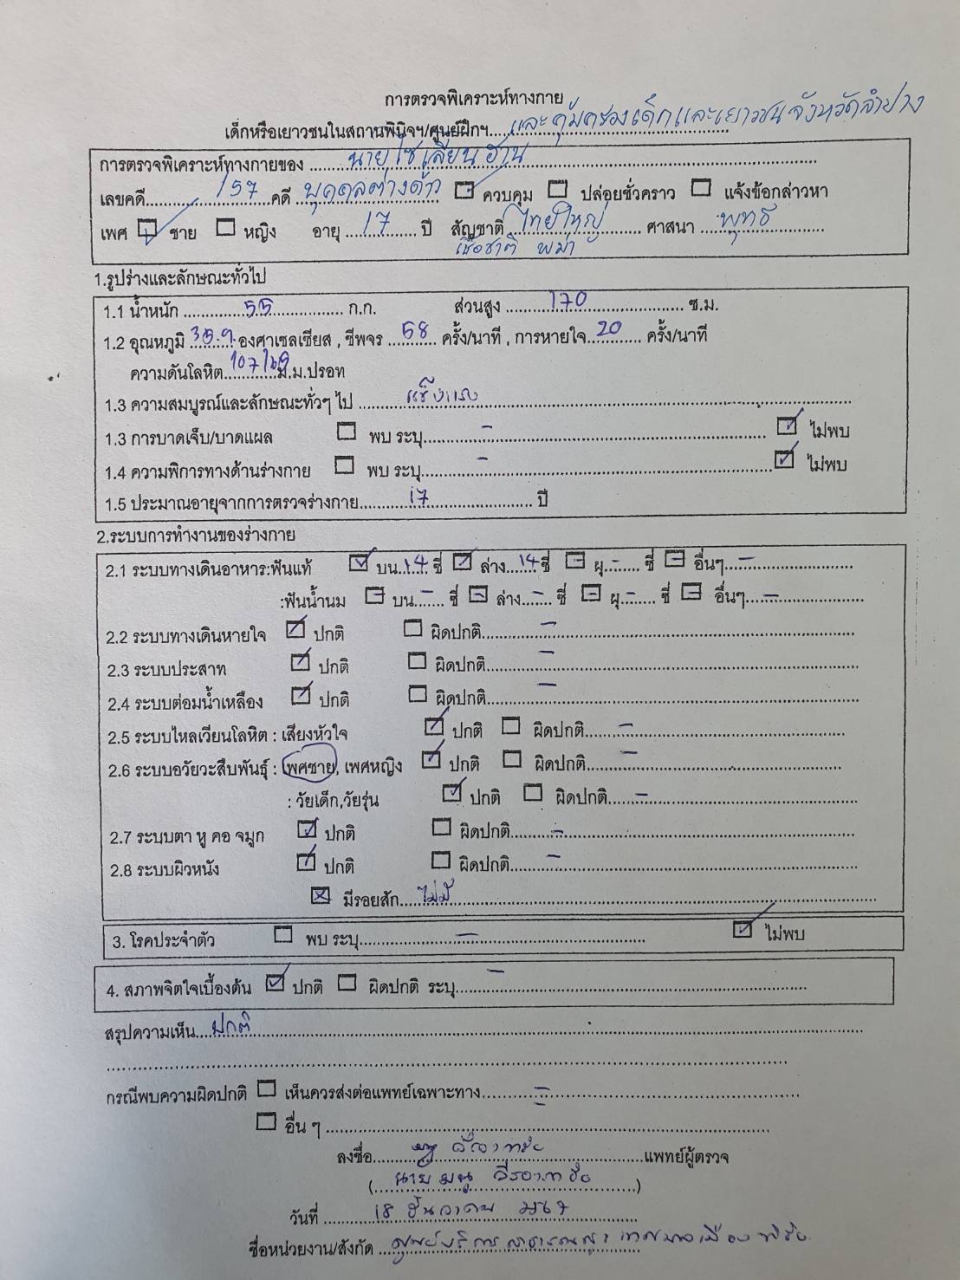 การตรวจพิเคราะห์ทางกาย
เด็กหรือเยาวชนในสถานพินิจฯ/ศูนย์ฝึกฯ....และคุ้มครองเด็กและเยาวชนจังหวัดลำปาง
การตรวจพิเคราะห์ทางกายของ ....นายไซ เลียน ฮาน....
เลขคดี....157....คดี ....บุคคลต่างด้าว.... ควบคุม ปล่อยชั่วคราว แจ้งข้อกล่าวหา
เพศ ชาย หญิง อายุ ....17.... ปี สัญชาติ ....ไทยใหญ่.... ศาสนา ....พุทธ....
เชื้อชาติ พม่า
1.รูปร่างและลักษณะทั่วไป
1.1 น้ำหนัก ....55.... ก.ก. ส่วนสูง ....170.... ซ.ม.
1.2 อุณหภูมิ ..35.9..องศาเซลเซียส , ชีพจร ..58.. ครั้ง/นาที , การหายใจ..20.. ครั้ง/นาที
ความดันโลหิต..107/..ม.ม.ปรอท
1.3 ความสมบูรณ์และลักษณะทั่วๆ ไป ....แข็งแรง....
1.3 การบาดเจ็บ/บาดแผล พบ ระบุ....-.... ไม่พบ
1.4 ความพิการทางด้านร่างกาย พบ ระบุ....-.... ไม่พบ
1.5 ประมาณอายุจากการตรวจร่างกาย....17.... ปี
2.ระบบการทำงานของร่างกาย
2.1 ระบบทางเดินอาหาร:ฟันแท้ บน..14.. ซี่ ล่าง..14..ซี่ ผุ..-.. ซี่ อื่นๆ..-..
:ฟันน้ำนม บน..-.. ซี่ ล่าง..-.. ซี่ ผุ..-.. ซี่ อื่นๆ..-..
2.2 ระบบทางเดินหายใจ ปกติ ผิดปกติ....-....
2.3 ระบบประสาท ปกติ ผิดปกติ....-....
2.4 ระบบต่อมน้ำเหลือง ปกติ ผิดปกติ....-....
2.5 ระบบไหลเวียนโลหิต : เสียงหัวใจ ปกติ ผิดปกติ....-....
2.6 ระบบอวัยวะสืบพันธุ์ : เพศชาย, เพศหญิง ปกติ ผิดปกติ....-....
: วัยเด็ก,วัยรุ่น ปกติ ผิดปกติ....-....
2.7 ระบบตา หู คอ จมูก ปกติ ผิดปกติ....-....
2.8 ระบบผิวหนัง ปกติ ผิดปกติ....-....
มีรอยสัก....ไม่มี....
3. โรคประจำตัว พบ ระบุ....-.... ไม่พบ
4. สภาพจิตใจเบื้องต้น ปกติ ผิดปกติ ระบุ....-....
สรุปความเห็น....ปกติ....
กรณีพบความผิดปกติ เห็นควรส่งต่อแพทย์เฉพาะทาง....-....
อื่น ๆ ....
ลงชื่อ........แพทย์ผู้ตรวจ
(....นายมนู....)
วันที่ ....18 ธันวาคม 2567....
ชื่อหน่วยงาน/สังกัด ....ศูนย์บริการสาธารณสุข เทศบาลเมืองพิชัย